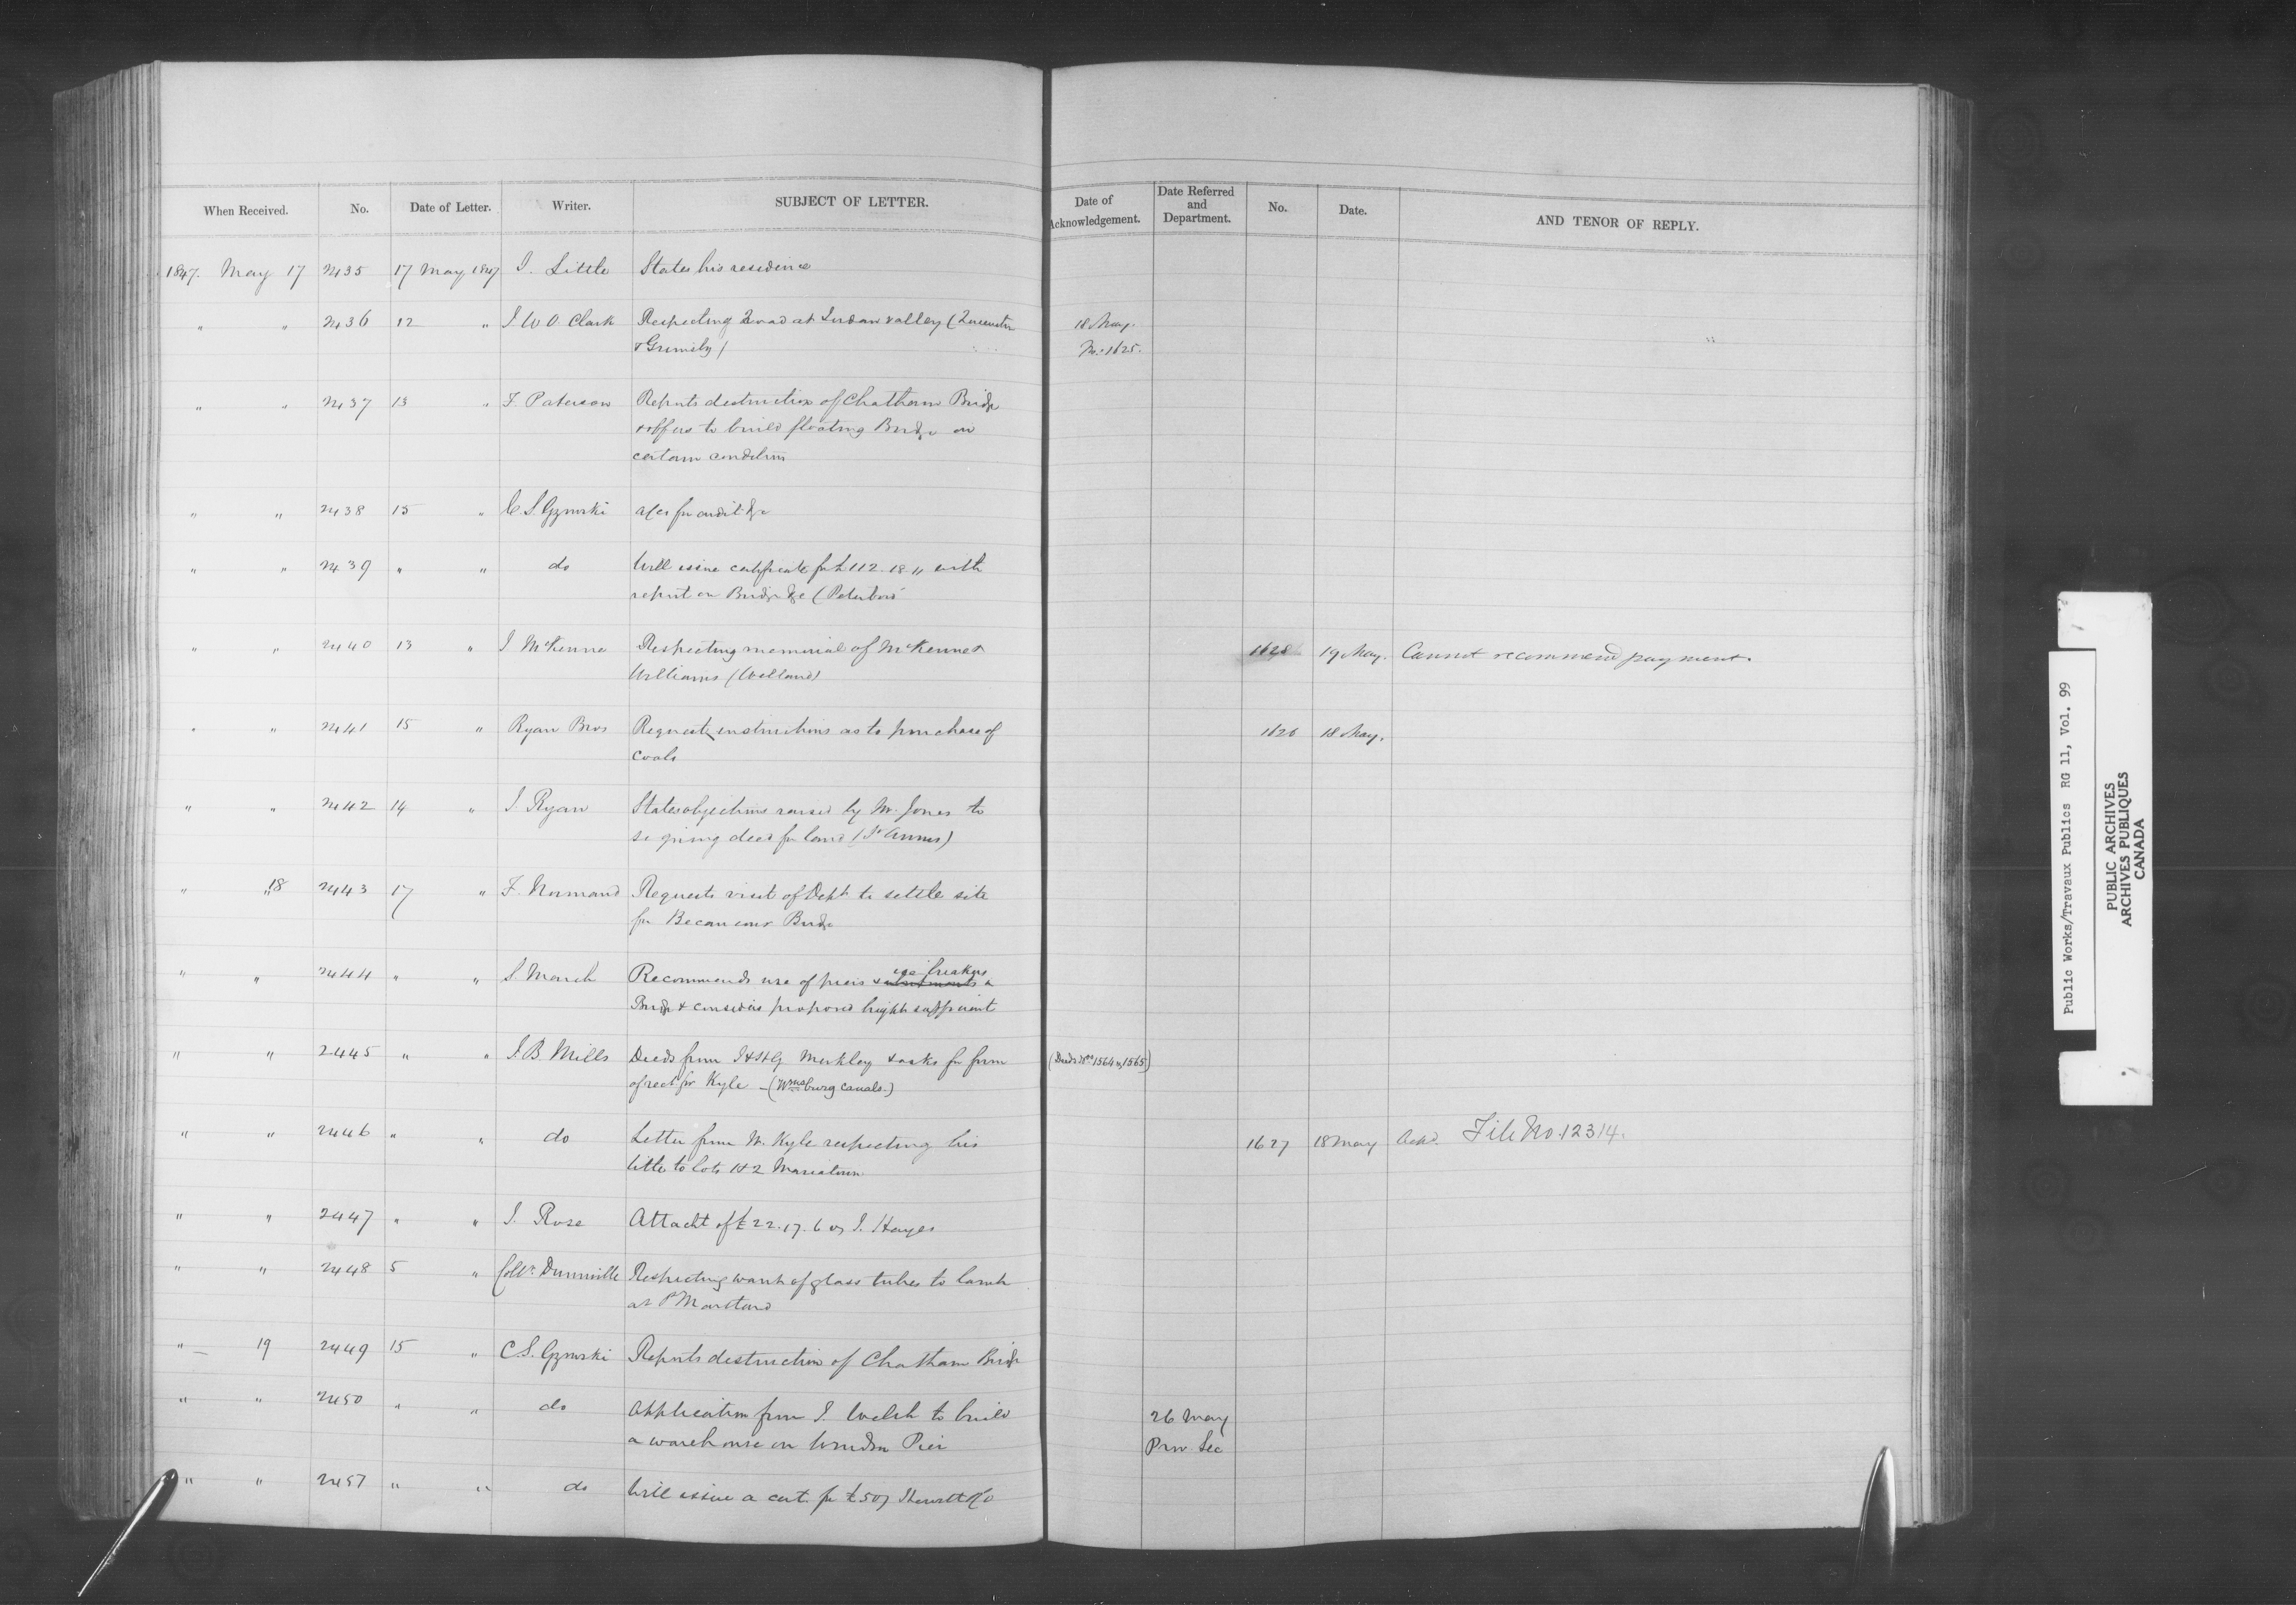 When Received. No. Date of Letter. Writer. SUBJECT OF LETTER. Date of Acknowledgement. Date Referred and Department. No. Date. AND TENOR OF REPLY.
1847. May 17 2435 17 May 1847 I. Little States his residence
" " 2436 12 " J W O Clark Respecting Road at Jordan valley ( 18 May.
& Grimsby) No. 1625.
" " 2437 13 " F. Paterson Reports destruction of Chatham Bridge
& offers to build floating Bridge on
certain conditions
" " 2438 15 " C. S. Gzowski a/cs for audit &c
" " 2439 " " do Will issue certificate for £112.18 " with
report on Bridge &c (Peterboro
" " 2440 13 " J McKenna Respecting memorial of McKenna & 1628 19 May. Cannot recommend payment.
Williams (Welland)
" " 2441 15 " Ryan Bros Requests instructions as to purchase of 1626 18 May.
coals
" " 2442 14 " J Ryan States objections raised by Mr. Jones to
signing deed for land (St Annes)
" " 18 2443 17 " F. Normand Requests visit of Dept to settle site
for Becancour Bridge
" " 2444 " " Recommends use of piers & ice breakers
Bridge & considers proposed height sufficient
" " 2445 " " J. B. Mills Deeds from J & H G Merkley & asks for form (Deeds Nos 1564 & 1565)
of rect for Kyle - (Wmsburg Canals.)
" " 2446 " " do Letter from W. Kyle respecting his 1627 18 May Ackd. File No. 12314.
title to lots 1 & 2 Mariatown
" " 2447 " " J. Rose Attacht of £22.17.6 J. Hayes
" " 2448 5 " Collr. Dunnville Respecting want of glass tubes to lamp
at Pt Maitland
" 19 2449 15 " C. S. Gzowski Reports destruction of Chatham Bridge
" " 2450 " " do Application from J. Welsh to build 26 May
a warehouse on Windsor Pier Prov Sec
" " 2451 " " do Will issue a cert for £507
Public Works/Travaux Publics RG 11, Vol. 99
PUBLIC ARCHIVES
ARCHIVES PUBLIQUES
CANADA